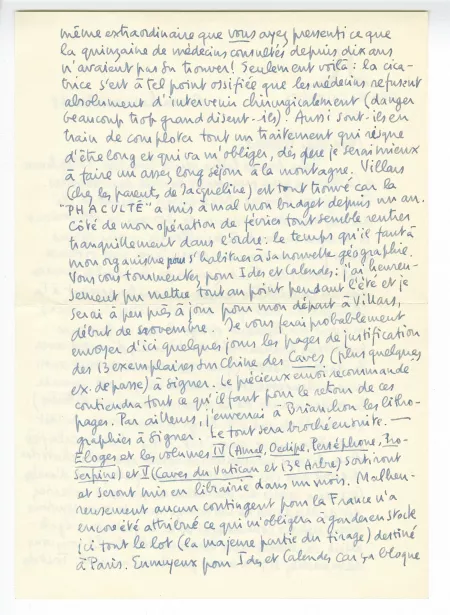 même extraordinaire que vous ayez pressenti ce que
la quinzaine de médecins consultés depuis dix ans
n'avaient pas su trouver! Seulement voilà: la cica-
trice s'est à tel point ossifiée que les médecins refusent
absolument d'intervenir chirurgicalement (danger
beaucoup trop grand disent-ils). Aussi sont-ils en
train de comploter tout un traitement qui risque
d'être long et qui va m'obliger, dès que je serai mieux
à faire un assez long séjour à la montagne. Villars
(chez les parents de Jacqueline) est tout trouvé car la
"PHACULTÉ" a mis à mal mon budget depuis un an.
Côté de mon opération de février tout semble rentrer
tranquillement dans l'ordre: le temps qu'il faut à
mon organisme pour s'habituer à sa nouvelle géographie.
Vous vous tourmentez pour Ides et Calendes: j'ai heureu-
sement pu mettre tout au point pendant l'été et je
serai à peu près à jour pour mon départ à Villars,
début de novembre. Je vous ferai probablement
envoyer d'ici quelques jours les pages de justification
des 13 exemplaires sur Chine des Caves (plus quelques
ex. de passe) à signer. Le précieux envoi recommandé
contiendra tout ce qu'il faut pour le retour de ces
pages. Par ailleurs, j'enverrai à Brianchon les litho-
graphies à signer. Le tout sera broché ensuite. —
Éloges et les volumes IV (Amal, Oedipe, Perséphone, Pro-
serpine) et V (Caves du Vatican et 13e Arbre) sortiront
et seront mis en librairie dans un mois. Malheu-
reusement aucun contingent pour la France n'a
encore été attribué ce qui m'obligera à garder en stock
ici tout le lot (la majeure partie du tirage) destiné
à Paris. Ennuyeux pour Ides et Calendes car ça bloque